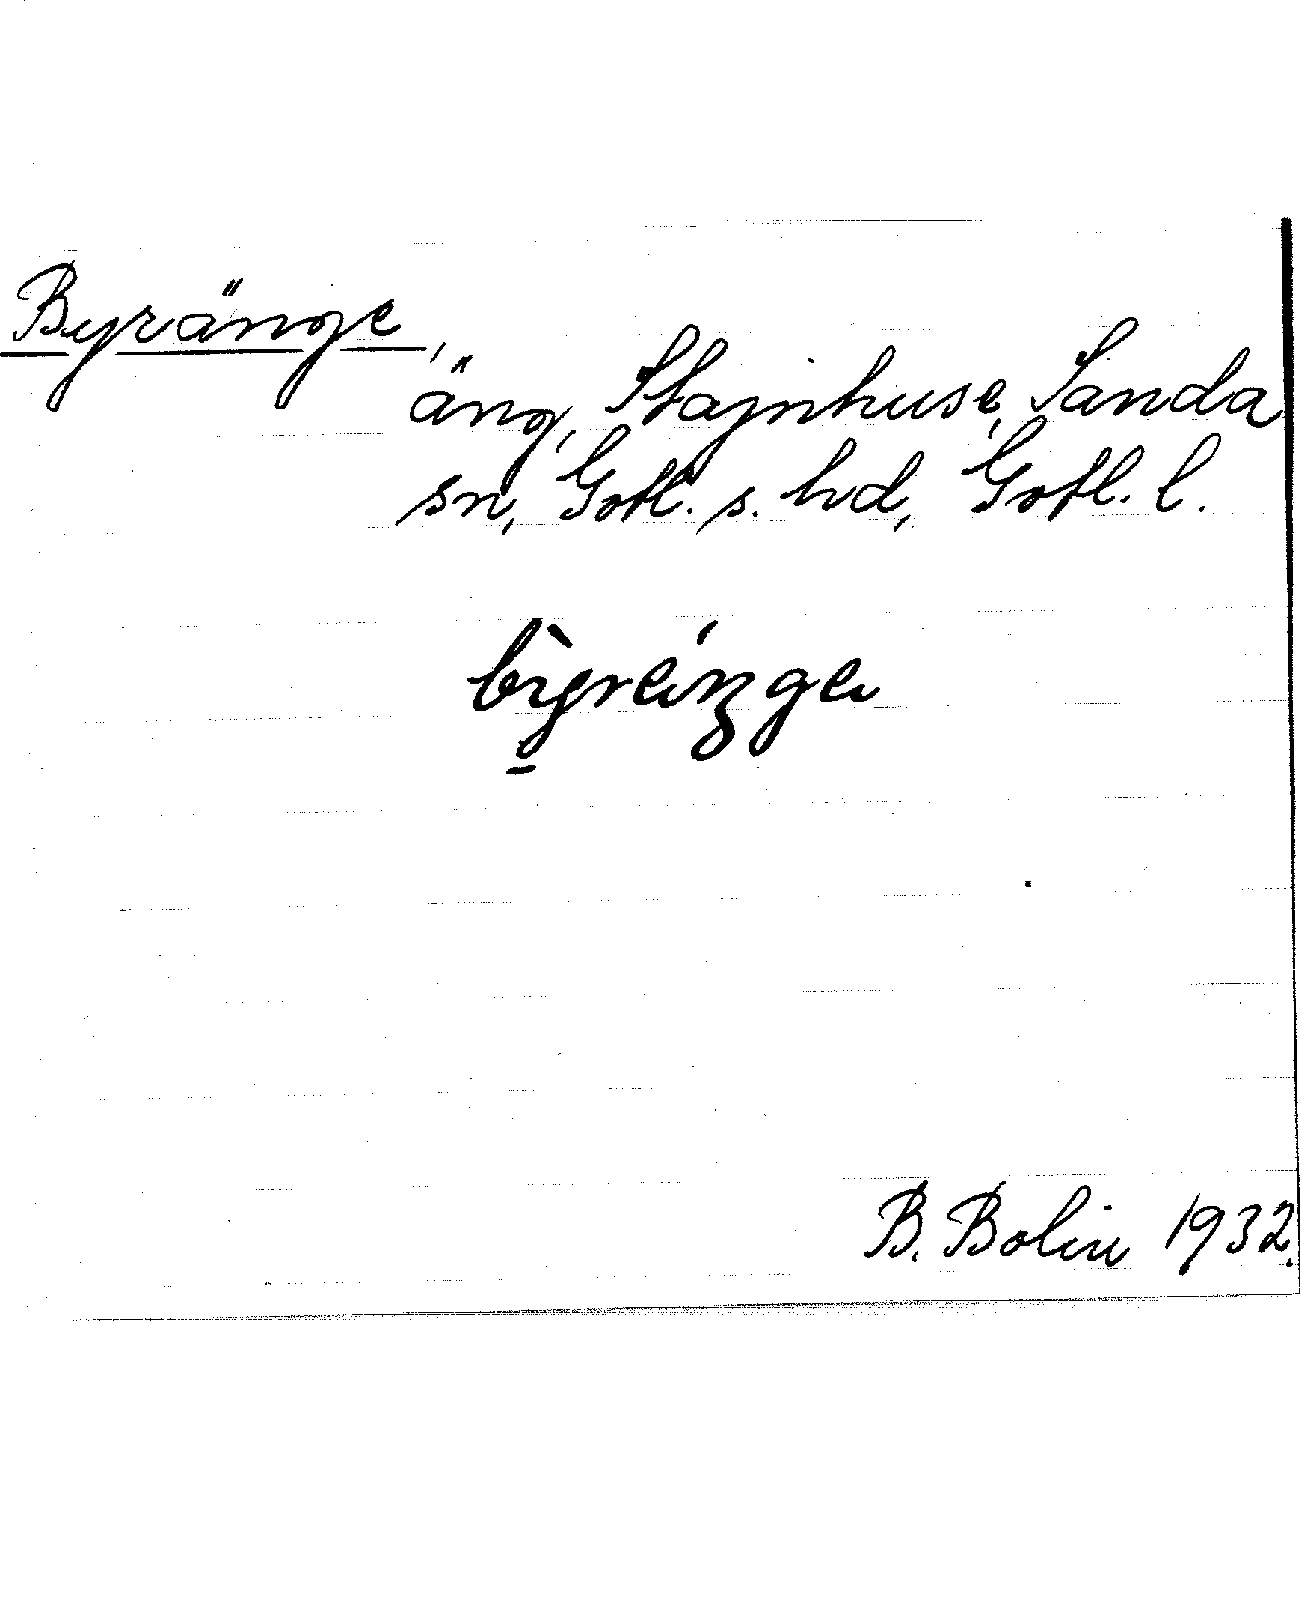 Byränge,
äng, Stajnhuse, Sanda
sn, Gotl. s. hd, Gotl. l.
B. Bolin 1932.